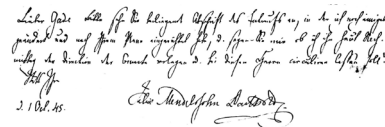 Lieber Gade bitte sehn Sie beiliegende Abschrift des Entwurfs an, in der ich noch einiges
geändert und nach Ihrem Plane eingerichtet habe, u. sagen Sie mir ob ich ihn heut Nach-
mittag der Direction des Concerts vorlegen u. bei diesen Herrn circuliren lassen soll?
Stets Ihr
Felix Mendelssohn Bartholdy
d. 1 Oct. 45.